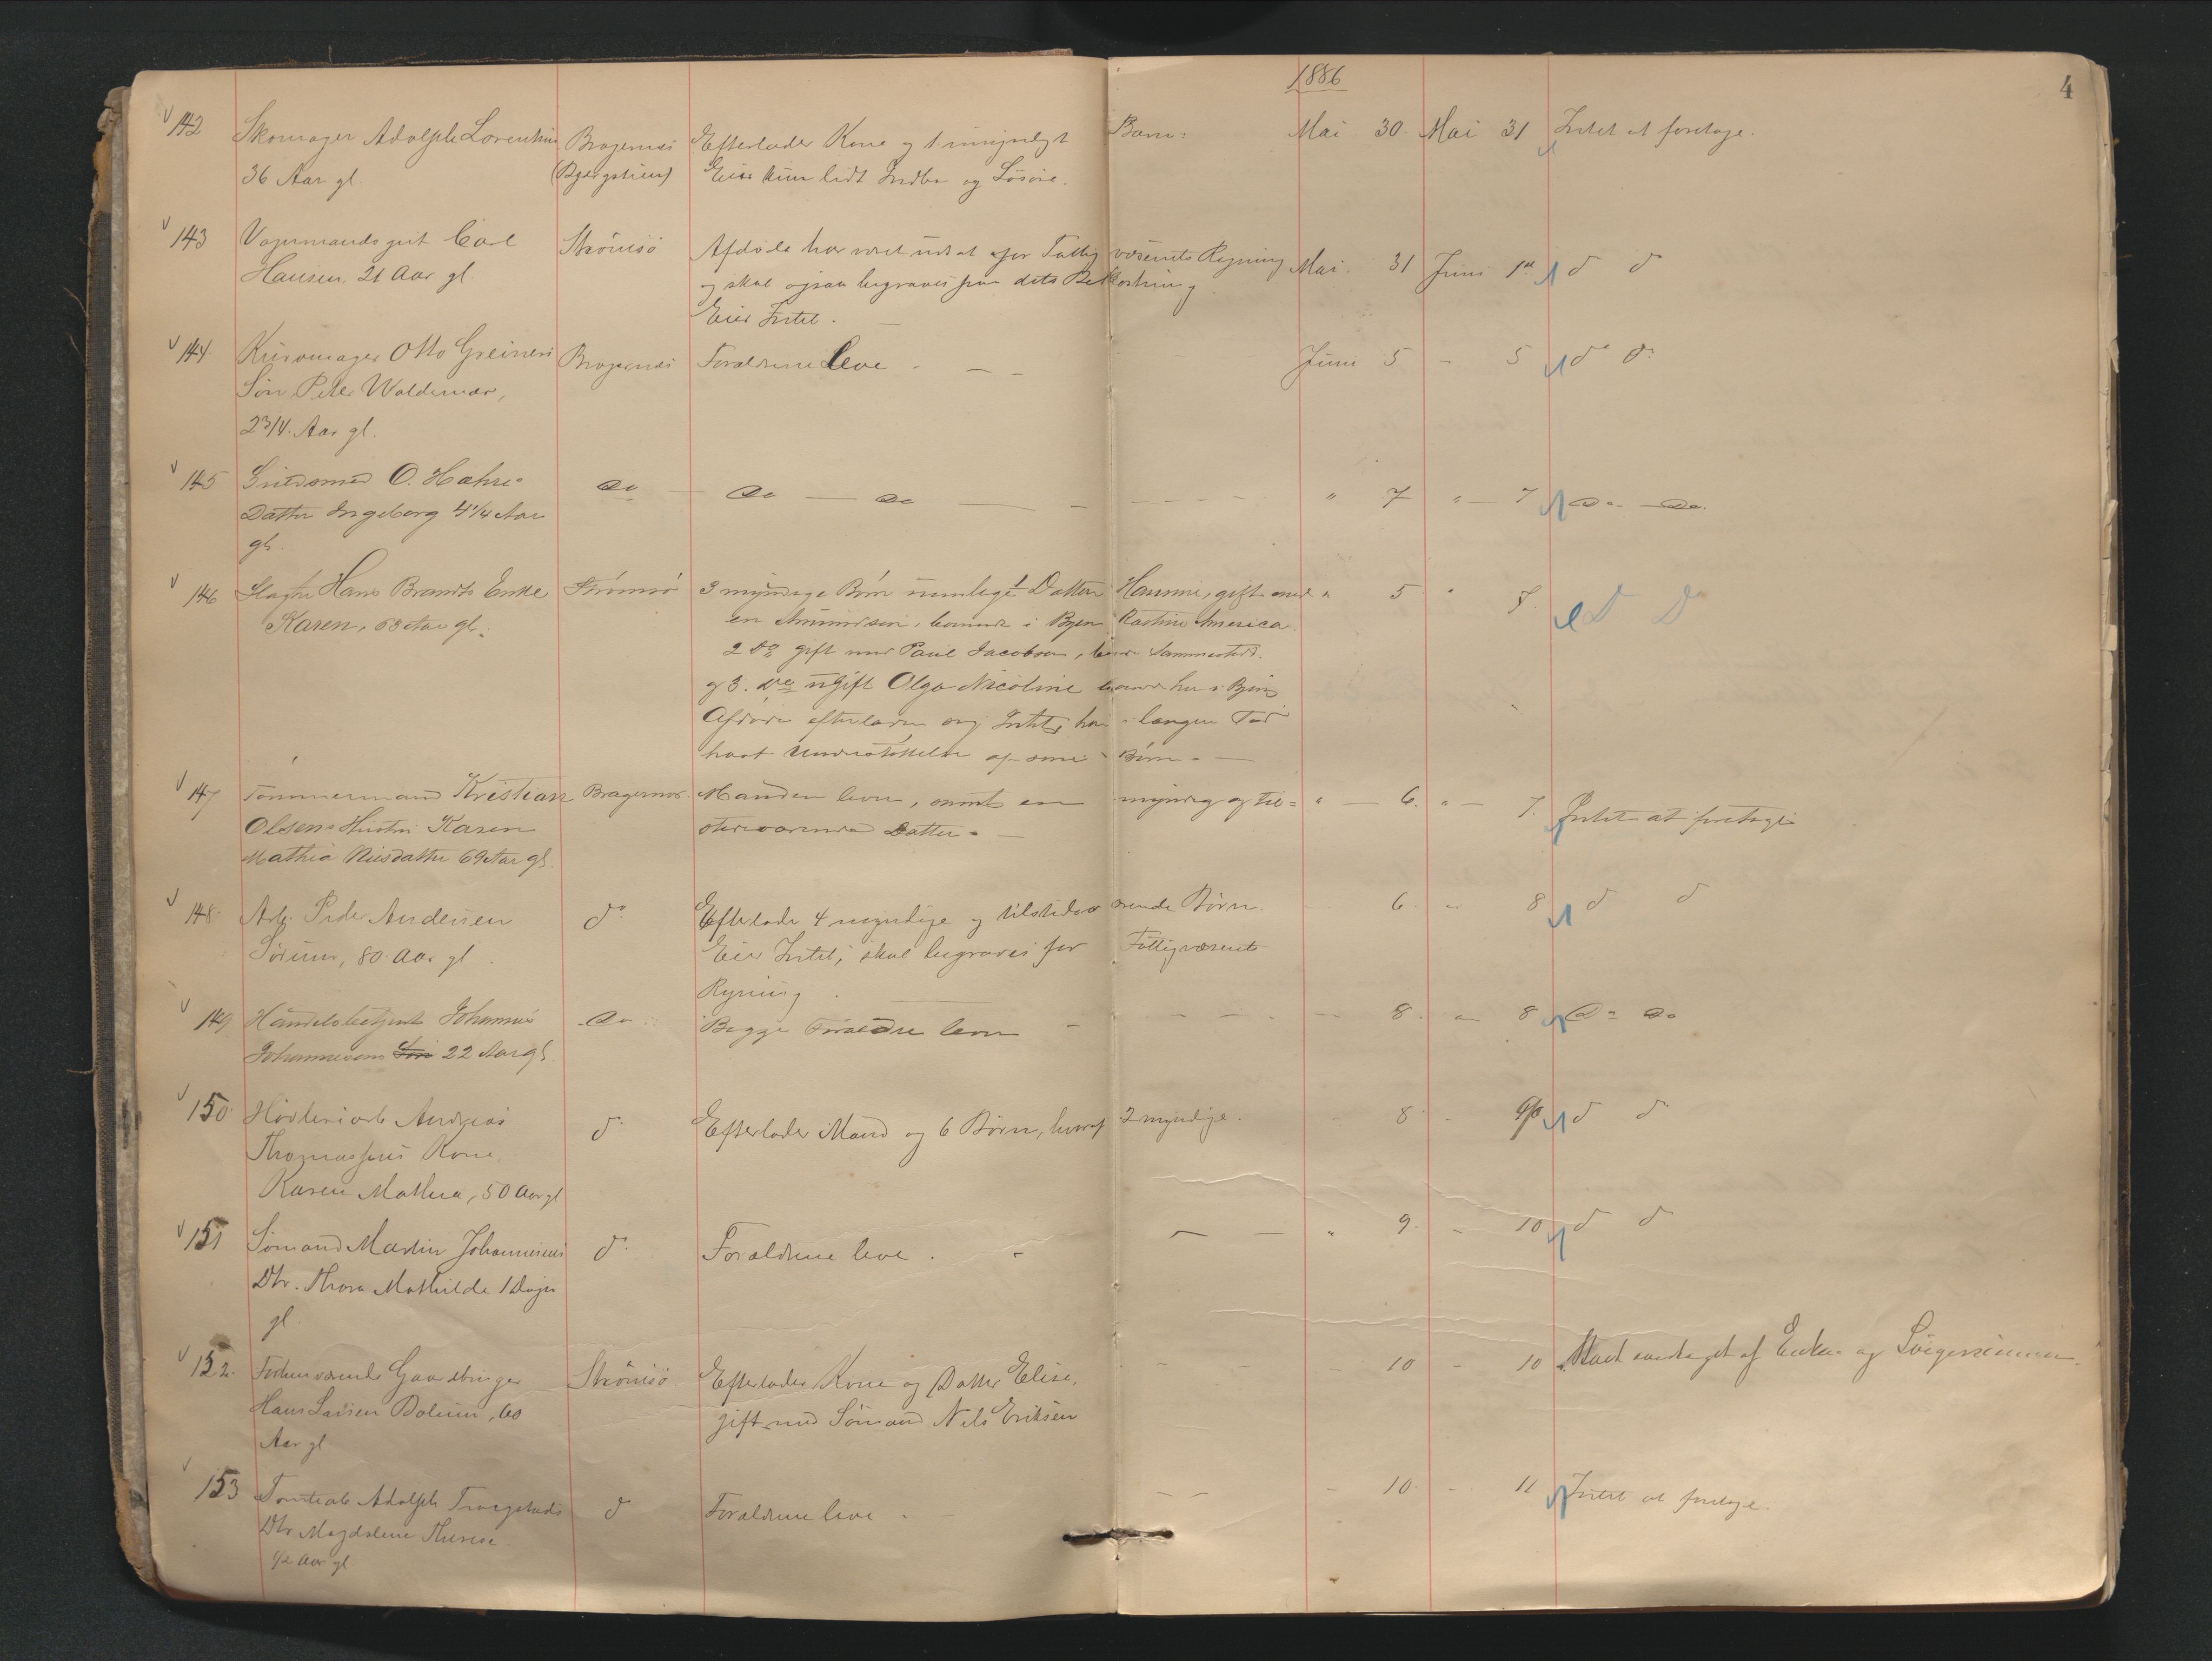 1886
4
142 Skomager Adolph Lorentzen Bragernæs Efterlader Kone og 1 umyndigt Barn: Mai 30. Mai 31 Intet at foretage.
36 Aar gl. Eier kun lidt Indbo og Løsøre.
143 Vognmandsgut Carl Strömsö Afdøde har været udsat for Fattigvæsenets Regning Mai. 31 Juni 1ste do do
Hansen. 21 Aar gl. og skal ogsaa begraves paa dets Bekostning.
Eier Intet.
144. Otto Greiners Bragernæs Forældrene Leve. Juni 5 - 5 do do
Søn Peter Waldemar,
2 3/4. Aar gl.
145 O. Hahres do do do " 7 " 7 do do.
Datter Ingeborg 4 1/4 Aar
gl.
146 Hans Brandts Enke Strömsö 3 myndige Børn nemlig 1 Datter Hanna, gift med " 5 " 8. do do
Karen, 63 Aar gl. en Amundsen, boende i Byen America.
2 do gift med Paul Jacobsen, boende Sammesteds.
og 3. do ugift Olga Nicoline boende her i Byen
Afdøde efterlader sig Intet, har i længere Tid
havt Understøttelse af sine Børn.
147 Tømmermand Kristian Bragernæs. Manden lever, samt en myndig og til= " 6. " 7. Intet at foretage
Olsens Hustru Karen stedeværende Datter.
Mathea Nilsdatter 69 Aar gl.
148. Arb. Peder Andersen do Efterlader 4 myndige og tilstedeværende Børn. 6. " 8 do do
Sørum, 80. Aar gl. Eier Intet; skal begraves for Fattigvæsenets
Regning.
149 Handelsbetjent Johannes do Begge Forældre lever 8. - 8 do do
Johannesens Søn 22 Aar gl
150. Andreas do Efterlader Mand og 6 Børn, hvoraf 2 myndige. 8 - 9/6 do do
Thomassens Kone
Karen Mathea, 50 Aar gl
151 Sømand Martin Johannesens do Forældrene leve. " 9. - 10 do do
Dtr. Thora Mathilde 1 Dag
gl.
152. Forhenværende Gaardbruger Strömsö Efterlader Kone og Datter Elise, 10 - 10 af Enken og Svigersønnen.
Hans Larsen Bolum, 60 gift med Sømand Nils Eriksen
Aar gl
153 Tomtearb. Adolph Trøgstads do Forældrene leve. - 10. - 11 Intet at foretage.
Dtr Magdalene Therese
1/2 Aar gl